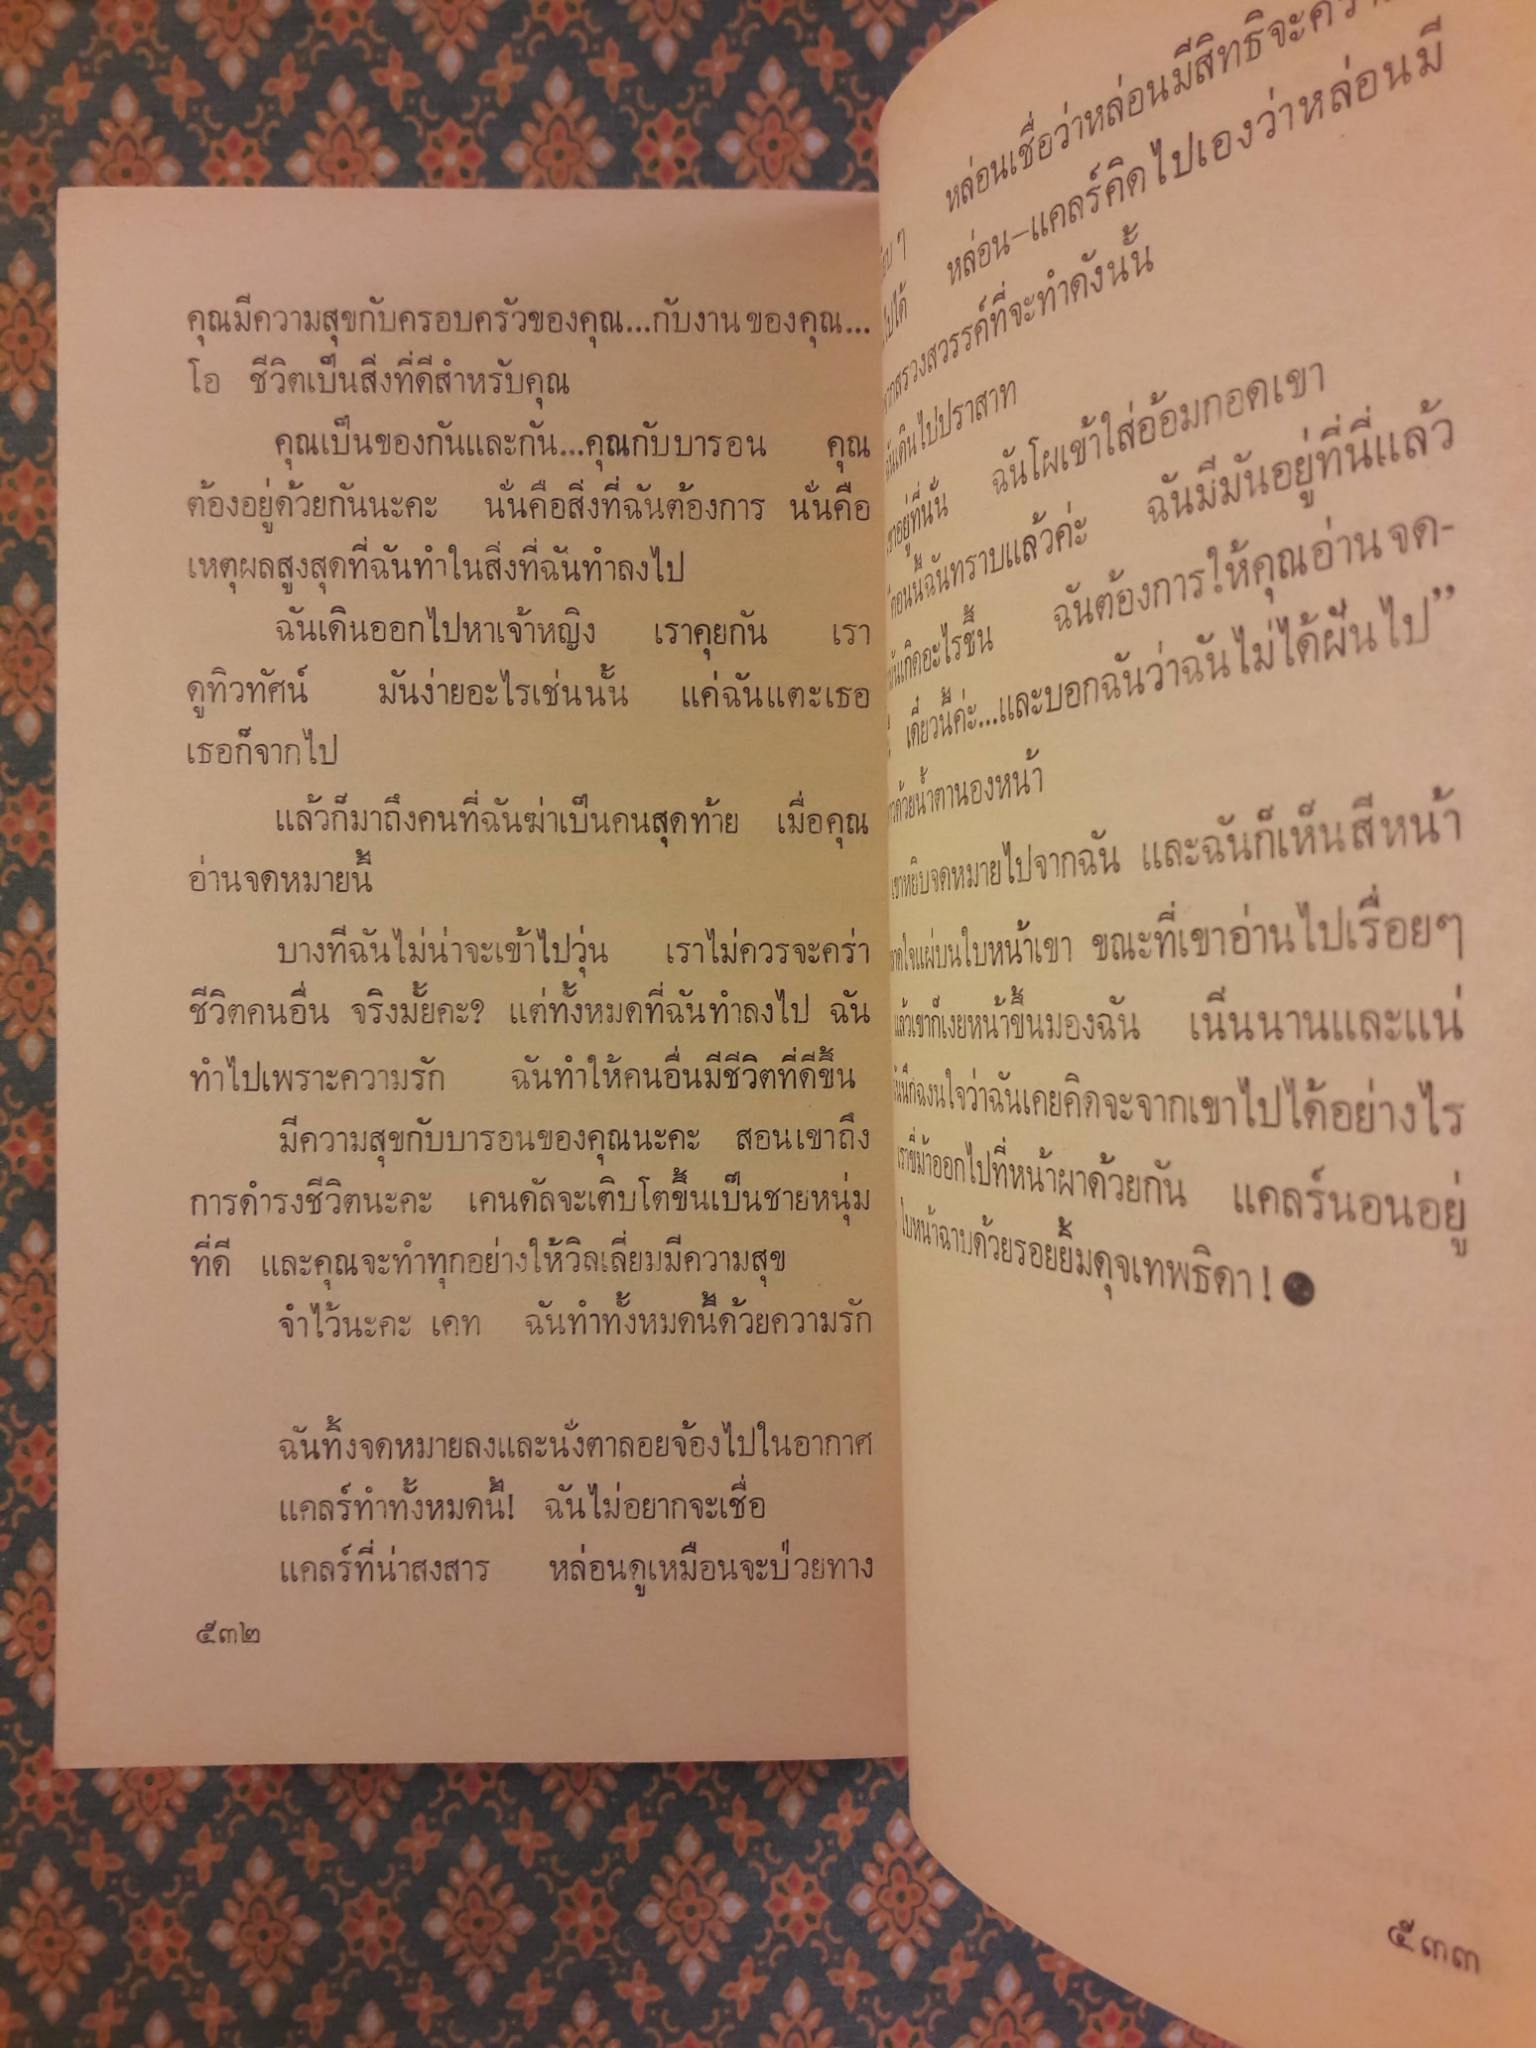 คุณมีความสุขกับครอบครัวของคุณ...กับงานของคุณ...
โอ ชีวิตเป็นสิ่งที่ดีสำหรับคุณ
คุณเป็นของกันและกัน...คุณกับบารอน คุณ
ต้องอยู่ด้วยกันนะคะ นั่นคือสิ่งที่ฉันต้องการ นั่นคือ
เหตุผลสูงสุดที่ฉันทำในสิ่งที่ฉันทำลงไป
ฉันเดินออกไปหาเจ้าหญิง เราคุยกัน เรา
ดูทิวทัศน์ มันง่ายอะไรเช่นนั้น แค่ฉันแตะเธอ
เธอก็จากไป
แล้วก็มาถึงคนที่ฉันฆ่าเป็นคนสุดท้าย เมื่อคุณ
อ่านจดหมายนี้
บางทีฉันไม่น่าจะเข้าไปวุ่น เราไม่ควรจะคร่า
ชีวิตคนอื่น จริงมั้ยคะ? แต่ทั้งหมดที่ฉันทำลงไป ฉัน
ทำไปเพราะความรัก ฉันทำให้คนอื่นมีชีวิตที่ดีขึ้น
มีความสุขกับบารอนของคุณนะคะ สอนเขาถึง
การดำรงชีวิตนะคะ เคนดัลจะเติบโตขึ้นเป็นชายหนุ่ม
ที่ดี และคุณจะทำทุกอย่างให้วิลเลี่ยมมีความสุข
จำไว้นะคะ เคท ฉันทำทั้งหมดนี้ด้วยความรัก
ฉันทิ้งจดหมายลงและนั่งตาลอยจ้องไปในอากาศ
แคลร์ทำทั้งหมดนี้! ฉันไม่อยากจะเชื่อ
แคลร์ที่น่าสงสาร หล่อนดูเหมือนจะป่วยทาง
๕๓๒
หล่อนเชื่อว่าหล่อนมีสิทธิจะ
หล่อน-แคลร์คิดไปเองว่าหล่อนมี
สรวงสวรรค์ที่จะทำดังนั้น
เดินไปปราสาท
อยู่ที่นั่น ฉันโผเข้าใส่อ้อมกอดเขา
ตอนนี้ฉันทราบแล้วค่ะ ฉันมีมันอยู่ที่นี่แล้ว
เกิดอะไรขึ้น ฉันต้องการให้คุณอ่านจด-
เดี๋ยวนี้ค่ะ...และบอกฉันว่าฉันไม่ได้ฝันไป”
ด้วยน้ำตานองหน้า
เขาหยิบจดหมายไปจากฉัน และฉันก็เห็นสีหน้า
แผ่บนใบหน้าเขา ขณะที่เขาอ่านไปเรื่อยๆ
แล้วเขาก็เงยหน้าขึ้นมองฉัน เนิ่นนานและแน่
ว่าฉันเคยคิดจะจากเขาไปได้อย่างไร
เราขี่ม้าออกไปที่หน้าผาด้วยกัน แคลร์นอนอยู่
ใบหน้าฉาบด้วยรอยยิ้มดุจเทพธิดา!
๕๓๓